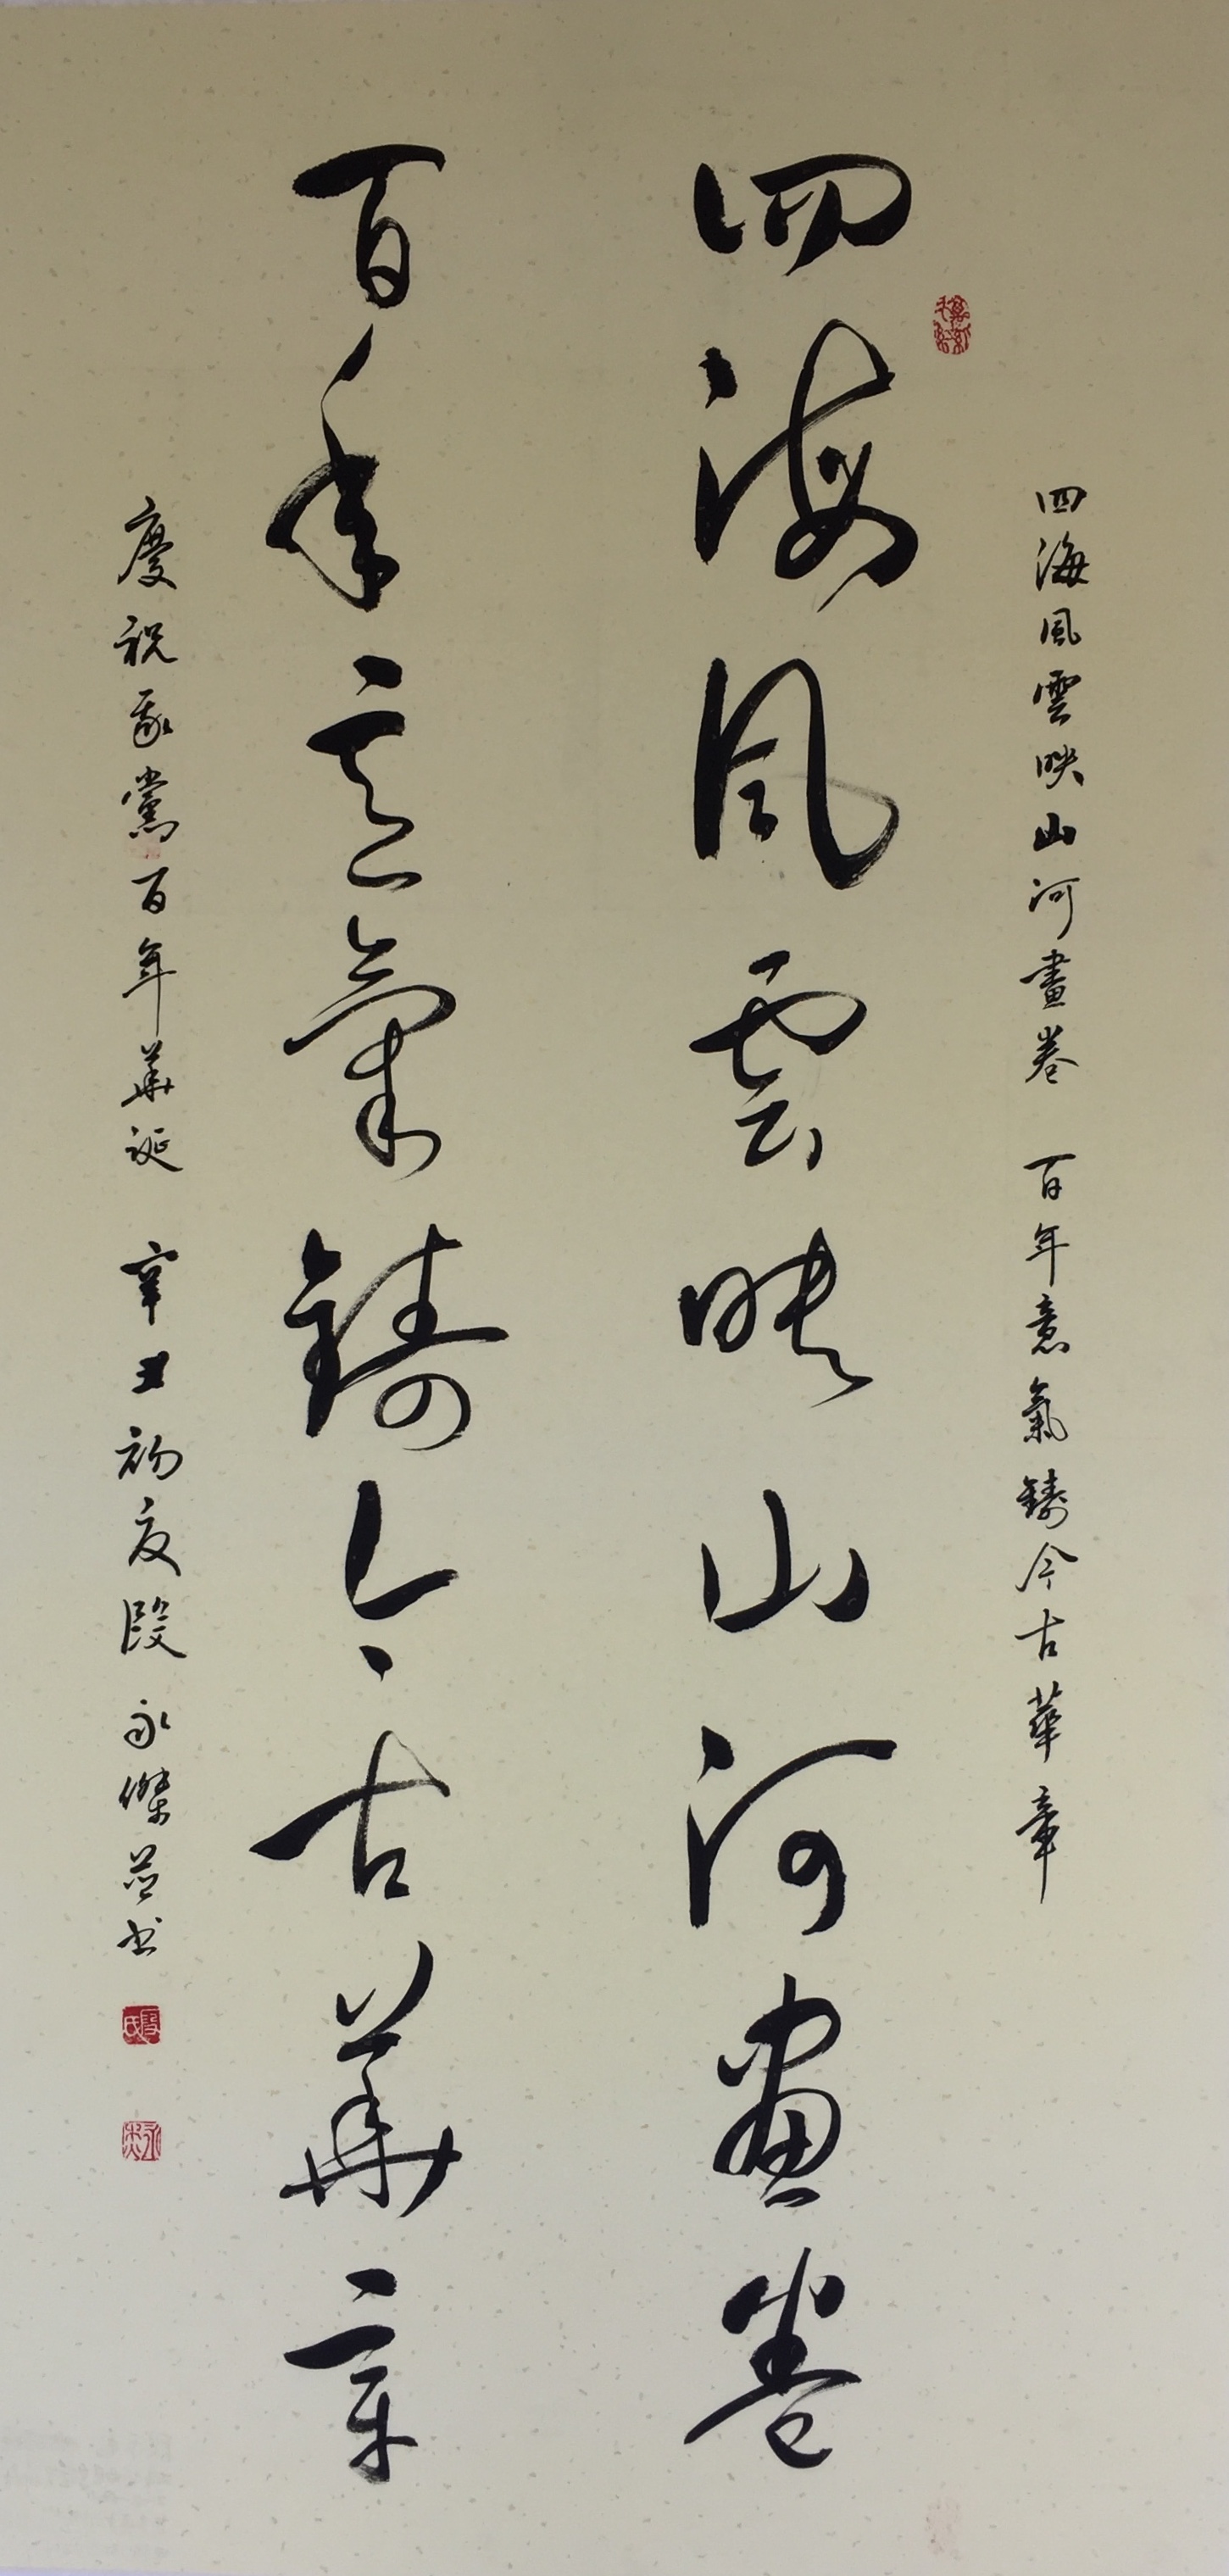 四海風雲映山河畫卷 百年意氣鑄今古華章
四海風雲映山河畫卷
百年意氣鑄今古華章
慶祝我黨百年華誕 辛丑初夏段永傑並书
段氏